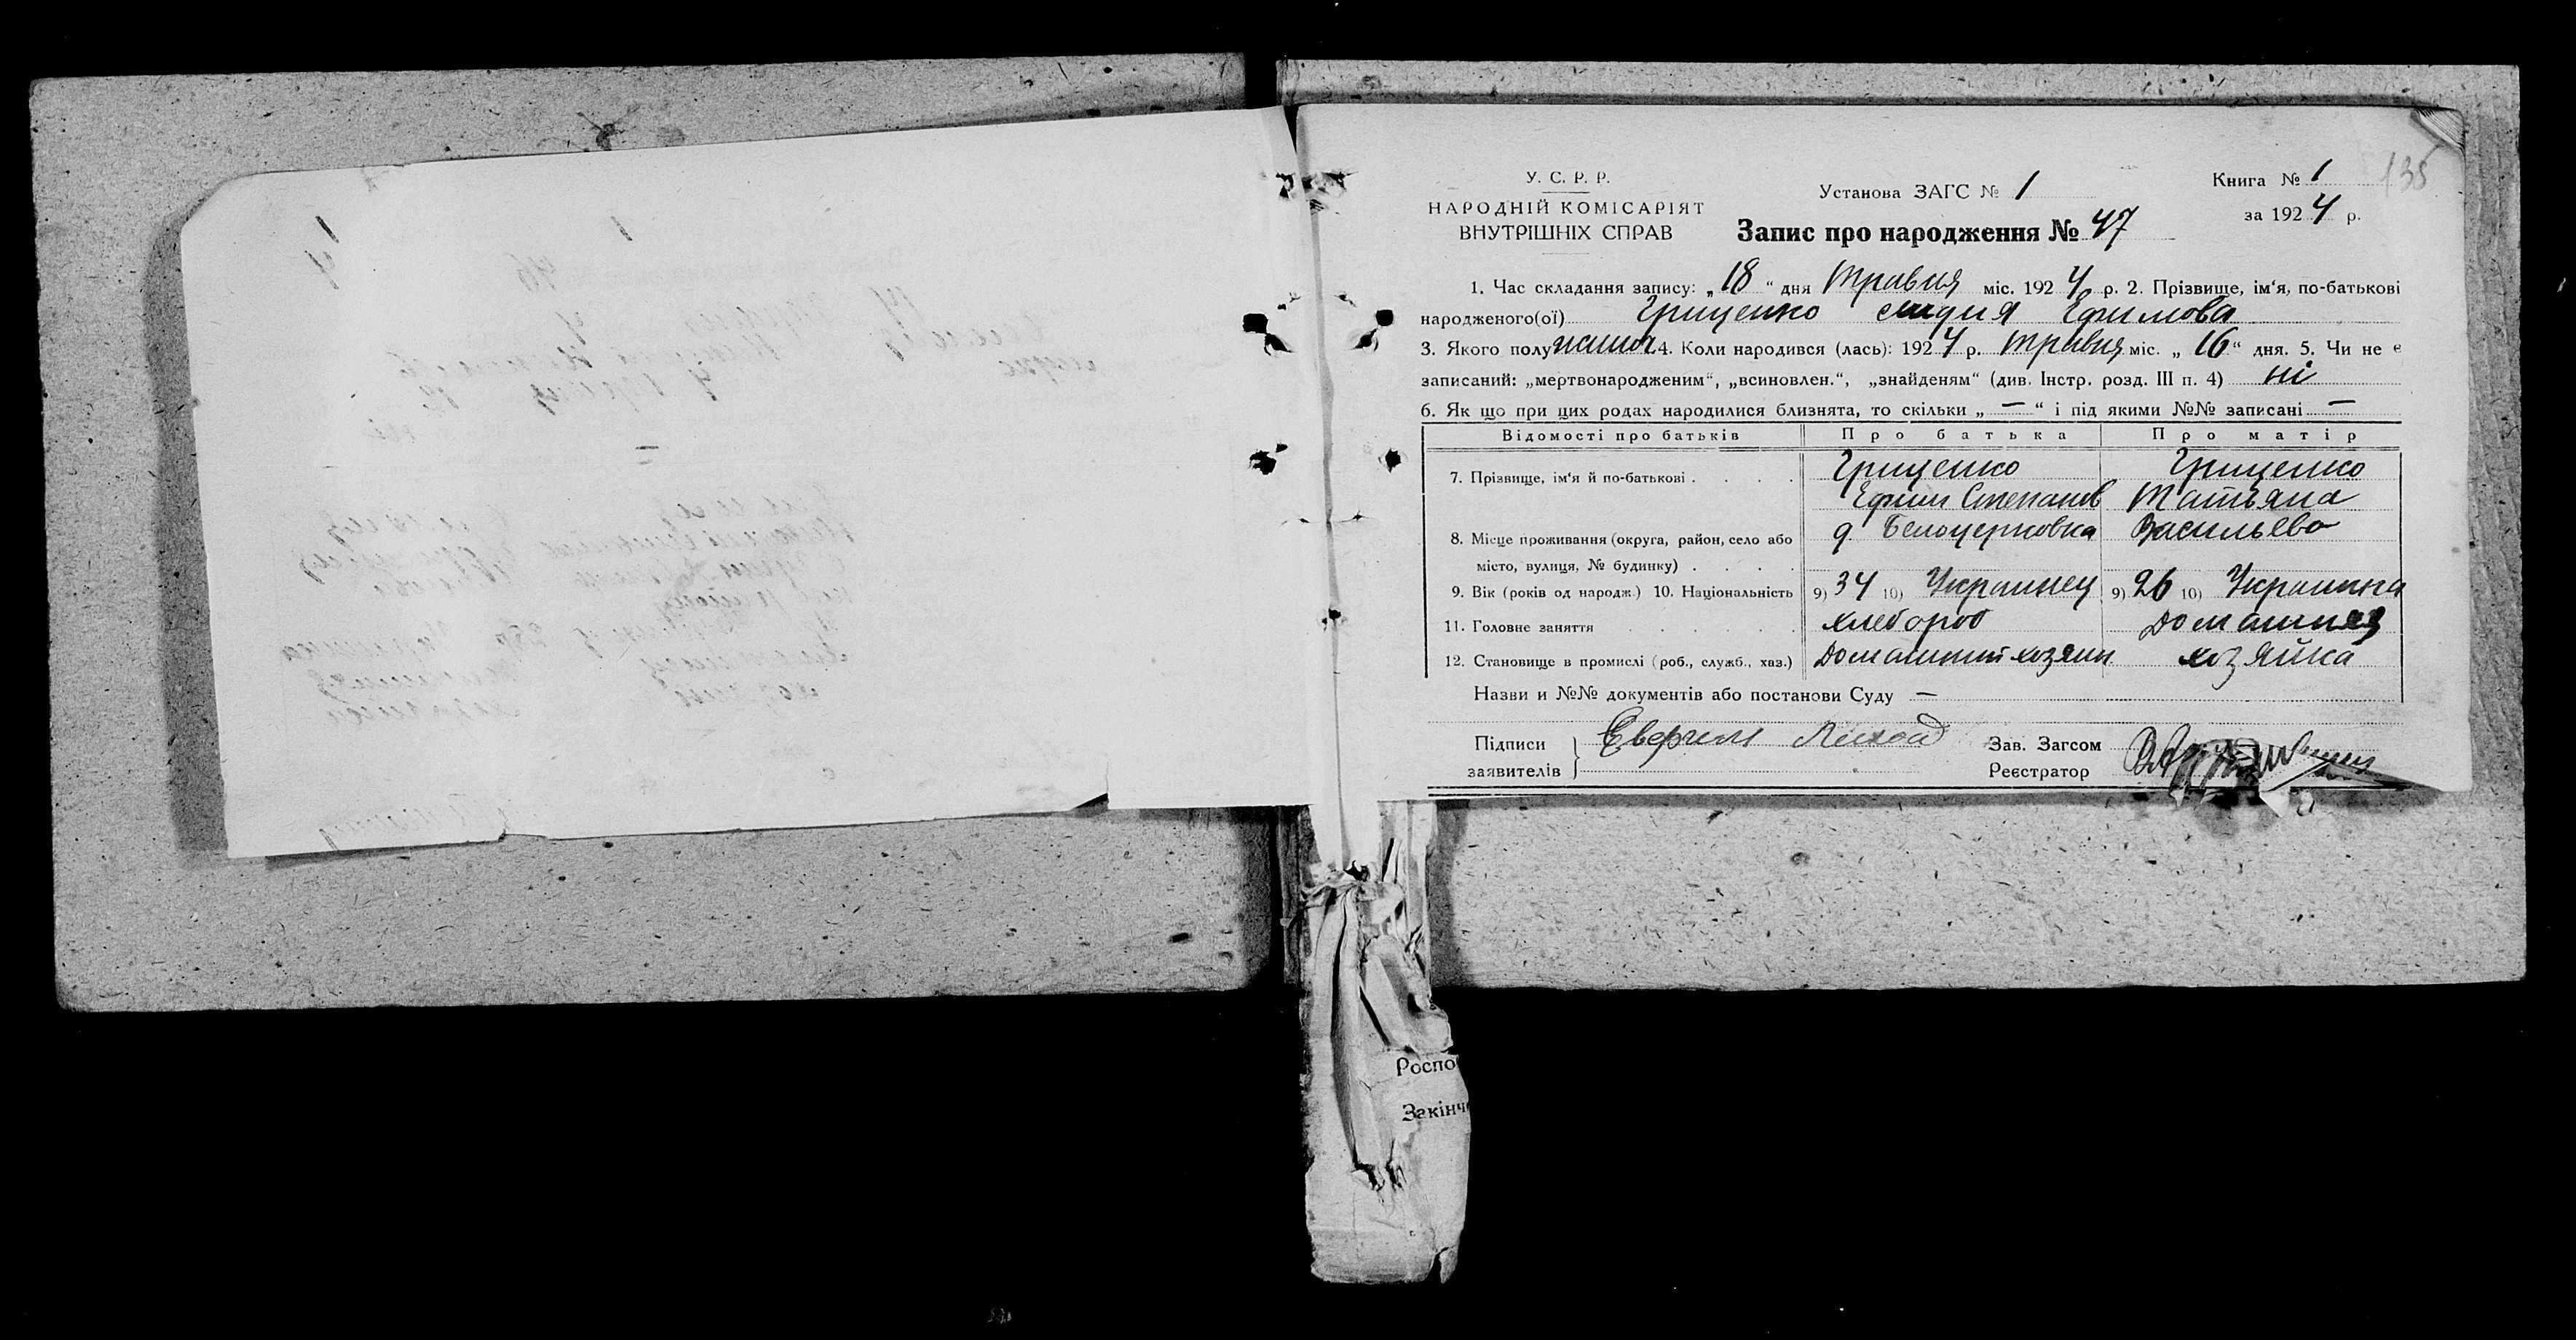 135
У. С. Р. Р.
НАРОДНІЙ КОМІСАРІЯТ
ВНУТРІШНІХ СПРАВ
Установа ЗАГС № 1
Книга № 1
за 1924 р.
Запис про народження № 47
1. Час складання запису: „18“ дня Травня міс. 1924 р. 2. Прізвище, ім‘я, по-батькові
народженого(ої) Грищенко Лидия Ефимова
3. Якого полу жиноч 4. Коли народився (лась): 1924 р. Травня міс. „16“ дня. 5. Чи не є
записаний: „мертвонародженим“, „всиновлен.“, „знайденям“ (див. Інстр. розд. III п. 4) ні
6. Як що при цих родах народилися близнята, то скільки „—“ і під якими №№ записані —
Відомості про батьків Про батька Про матір
7. Прізвище, ім‘я й по-батькові . . . . Грищенко Грищенко
Ефим Степанов Татьяна
8. Місце проживання (округа, район, село або д. Белоцерковка Васильева
місто, вулиця, № будинку) . . . .
9. Вік (років од народж.) 10. Національність 9) 34 10) Украинец 9) 26 10) Украинка
11. Головне заняття . . . . . . хлебороб Домашняя
12. Становище в промислі (роб., служб., хаз.) Домашний хозяин хозяйка
Назви и №№ документів або постанови Суду —
Підписи
заявителів
Зав. Загсом
Реєстратор
Роспо
Закінч